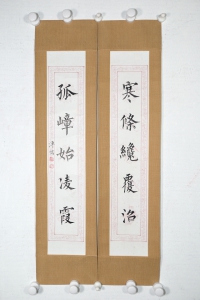 寒條纔覆治
孤嶂始凌霞